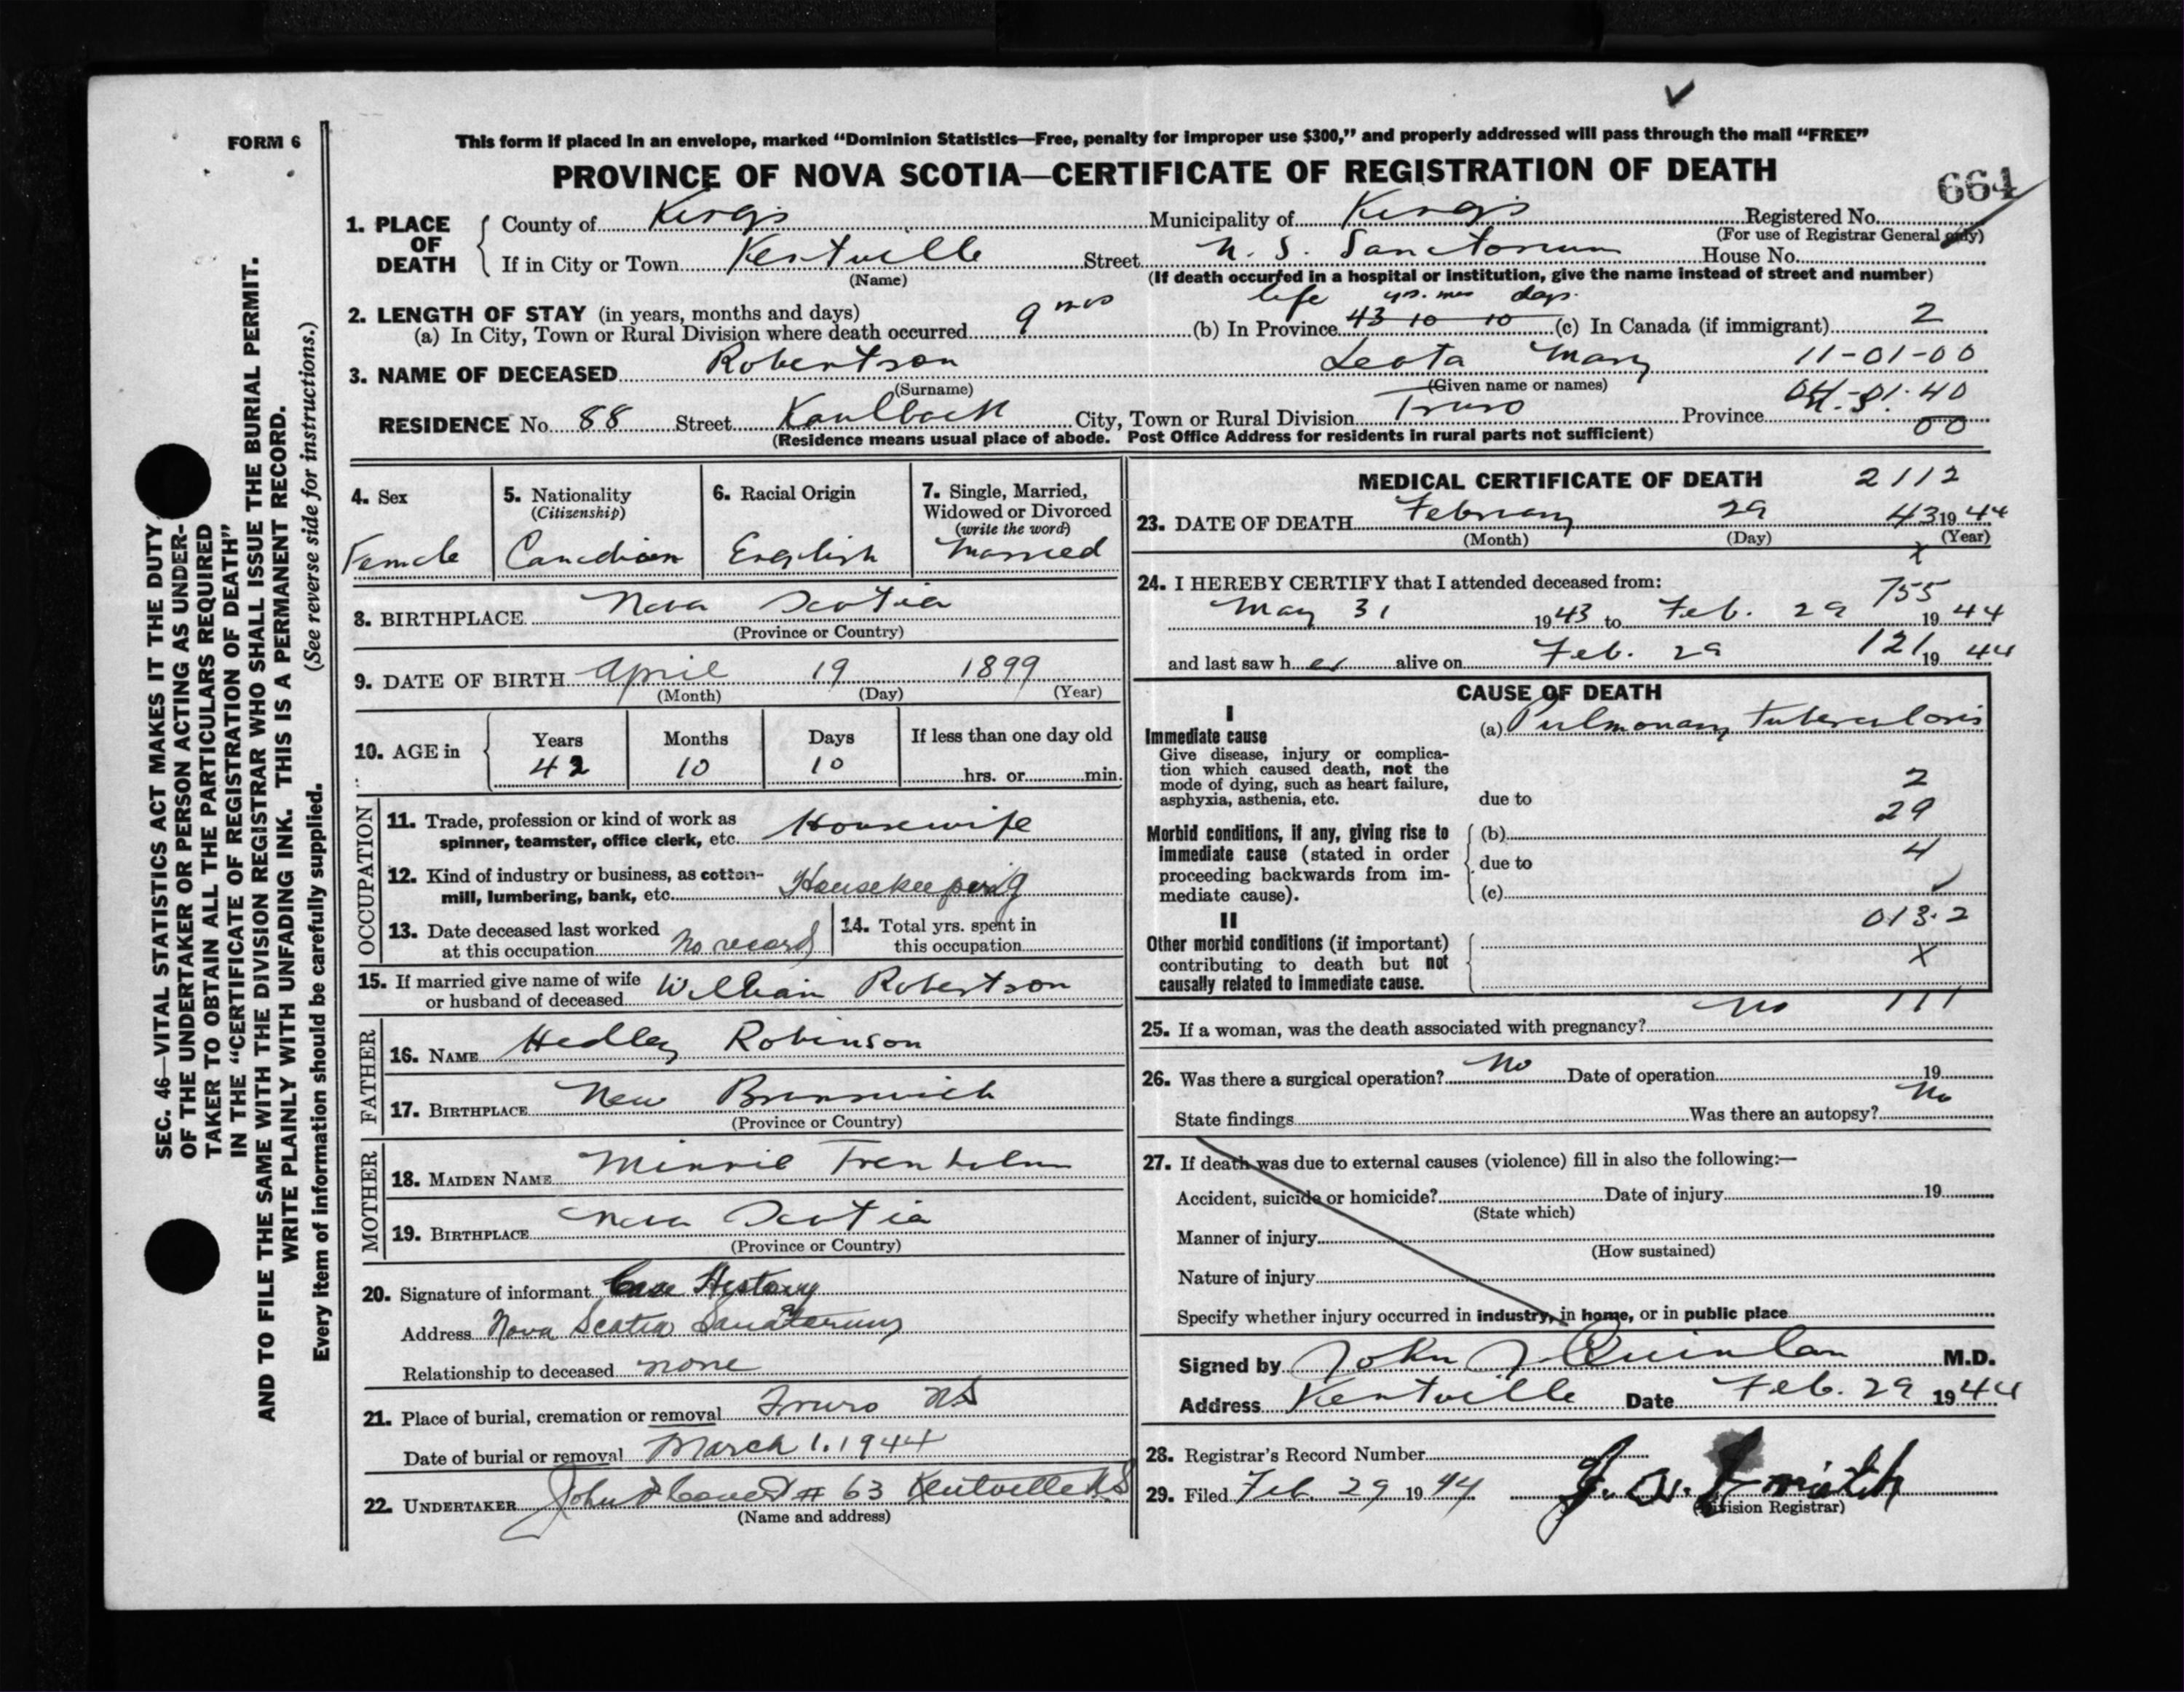 FORM 6
This form if placed in an envelope, marked “Dominion Statistics—Free, penalty for improper use $300,” and properly addressed will pass through the mail “FREE”
PROVINCE OF NOVA SCOTIA—CERTIFICATE OF REGISTRATION OF DEATH
664
1. PLACE OF DEATH County of Kings Municipality of Kings Registered No.
(For use of Registrar General only)
If in City or Town Kentville Street N. S. Sanctorium House No.
(Name) (If death occurred in a hospital or institution, give the name instead of street and number)
life yrs. mos days.
2. LENGTH OF STAY (in years, months and days)
(a) In City, Town or Rural Division where death occurred 9 mos (b) In Province 43 10 10 (c) In Canada (if immigrant) 2
3. NAME OF DECEASED Robertson Leota Mary 11-01-00
(Surname) (Given name or names)
RESIDENCE No. 88 Street Kaulback City, Town or Rural Division Truro Province N.S.
(Residence means usual place of abode. Post Office Address for residents in rural parts not sufficient) 00
4. Sex Female
5. Nationality (Citizenship) Canadian
6. Racial Origin English
7. Single, Married, Widowed or Divorced (write the word) Married
8. BIRTHPLACE Nova Scotia
(Province or Country)
9. DATE OF BIRTH April 19 1899
(Month) (Day) (Year)
10. AGE in Years Months Days If less than one day old
42 10 10 hrs. or min.
OCCUPATION
11. Trade, profession or kind of work as
spinner, teamster, office clerk, etc. Housewife
12. Kind of industry or business, as cotton-
mill, lumbering, bank, etc. Housekeeping
13. Date deceased last worked
at this occupation No record
14. Total yrs. spent in
this occupation
15. If married give name of wife
or husband of deceased William Robertson
FATHER
16. NAME Hedley Robinson
17. BIRTHPLACE New Brunswick
(Province or Country)
MOTHER
18. MAIDEN NAME Minnie Trenholm
19. BIRTHPLACE Nova Scotia
(Province or Country)
20. Signature of informant Case History
Address Nova Scotia Sanatorium
Relationship to deceased none
21. Place of burial, cremation or removal Truro NS
Date of burial or removal March 1. 1944
22. UNDERTAKER # 63 Kentville N.S
(Name and address)
MEDICAL CERTIFICATE OF DEATH 2112
23. DATE OF DEATH February 29 43 1944
(Month) (Day) (Year)
x
24. I HEREBY CERTIFY that I attended deceased from:
755
May 31 1943 to Feb. 29 1944
and last saw her alive on Feb. 29 121 1944
CAUSE OF DEATH
I
Immediate cause
Give disease, injury or complica-
tion which caused death, not the
mode of dying, such as heart failure,
asphyxia, asthenia, etc.
(a) Pulmonary Tuberculosis
2
due to
29
Morbid conditions, if any, giving rise to
immediate cause (stated in order
proceeding backwards from im-
mediate cause).
(b)
4
due to
(c)
013.2
II
Other morbid conditions (if important)
contributing to death but not
causally related to immediate cause.
X
111
25. If a woman, was the death associated with pregnancy? No
26. Was there a surgical operation? No Date of operation 19
State findings Was there an autopsy? No
27. If death was due to external causes (violence) fill in also the following:—
Accident, suicide or homicide? Date of injury 19
(State which)
Manner of injury
(How sustained)
Nature of injury
Specify whether injury occurred in industry, in home, or in public place
Signed by John J Quinlan M.D.
Address Kentville Date Feb. 29 1944
28. Registrar's Record Number
29. Filed Feb. 29 1944 Smith
(Division Registrar)
SEC. 46—VITAL STATISTICS ACT MAKES IT THE DUTY
OF THE UNDERTAKER OR PERSON ACTING AS UNDER-
TAKER TO OBTAIN ALL THE PARTICULARS REQUIRED
IN THE “CERTIFICATE OF REGISTRATION OF DEATH”
AND TO FILE THE SAME WITH THE DIVISION REGISTRAR WHO SHALL ISSUE THE BURIAL PERMIT.
WRITE PLAINLY WITH UNFADING INK. THIS IS A PERMANENT RECORD.
Every item of information should be carefully supplied. (See reverse side for instructions.)